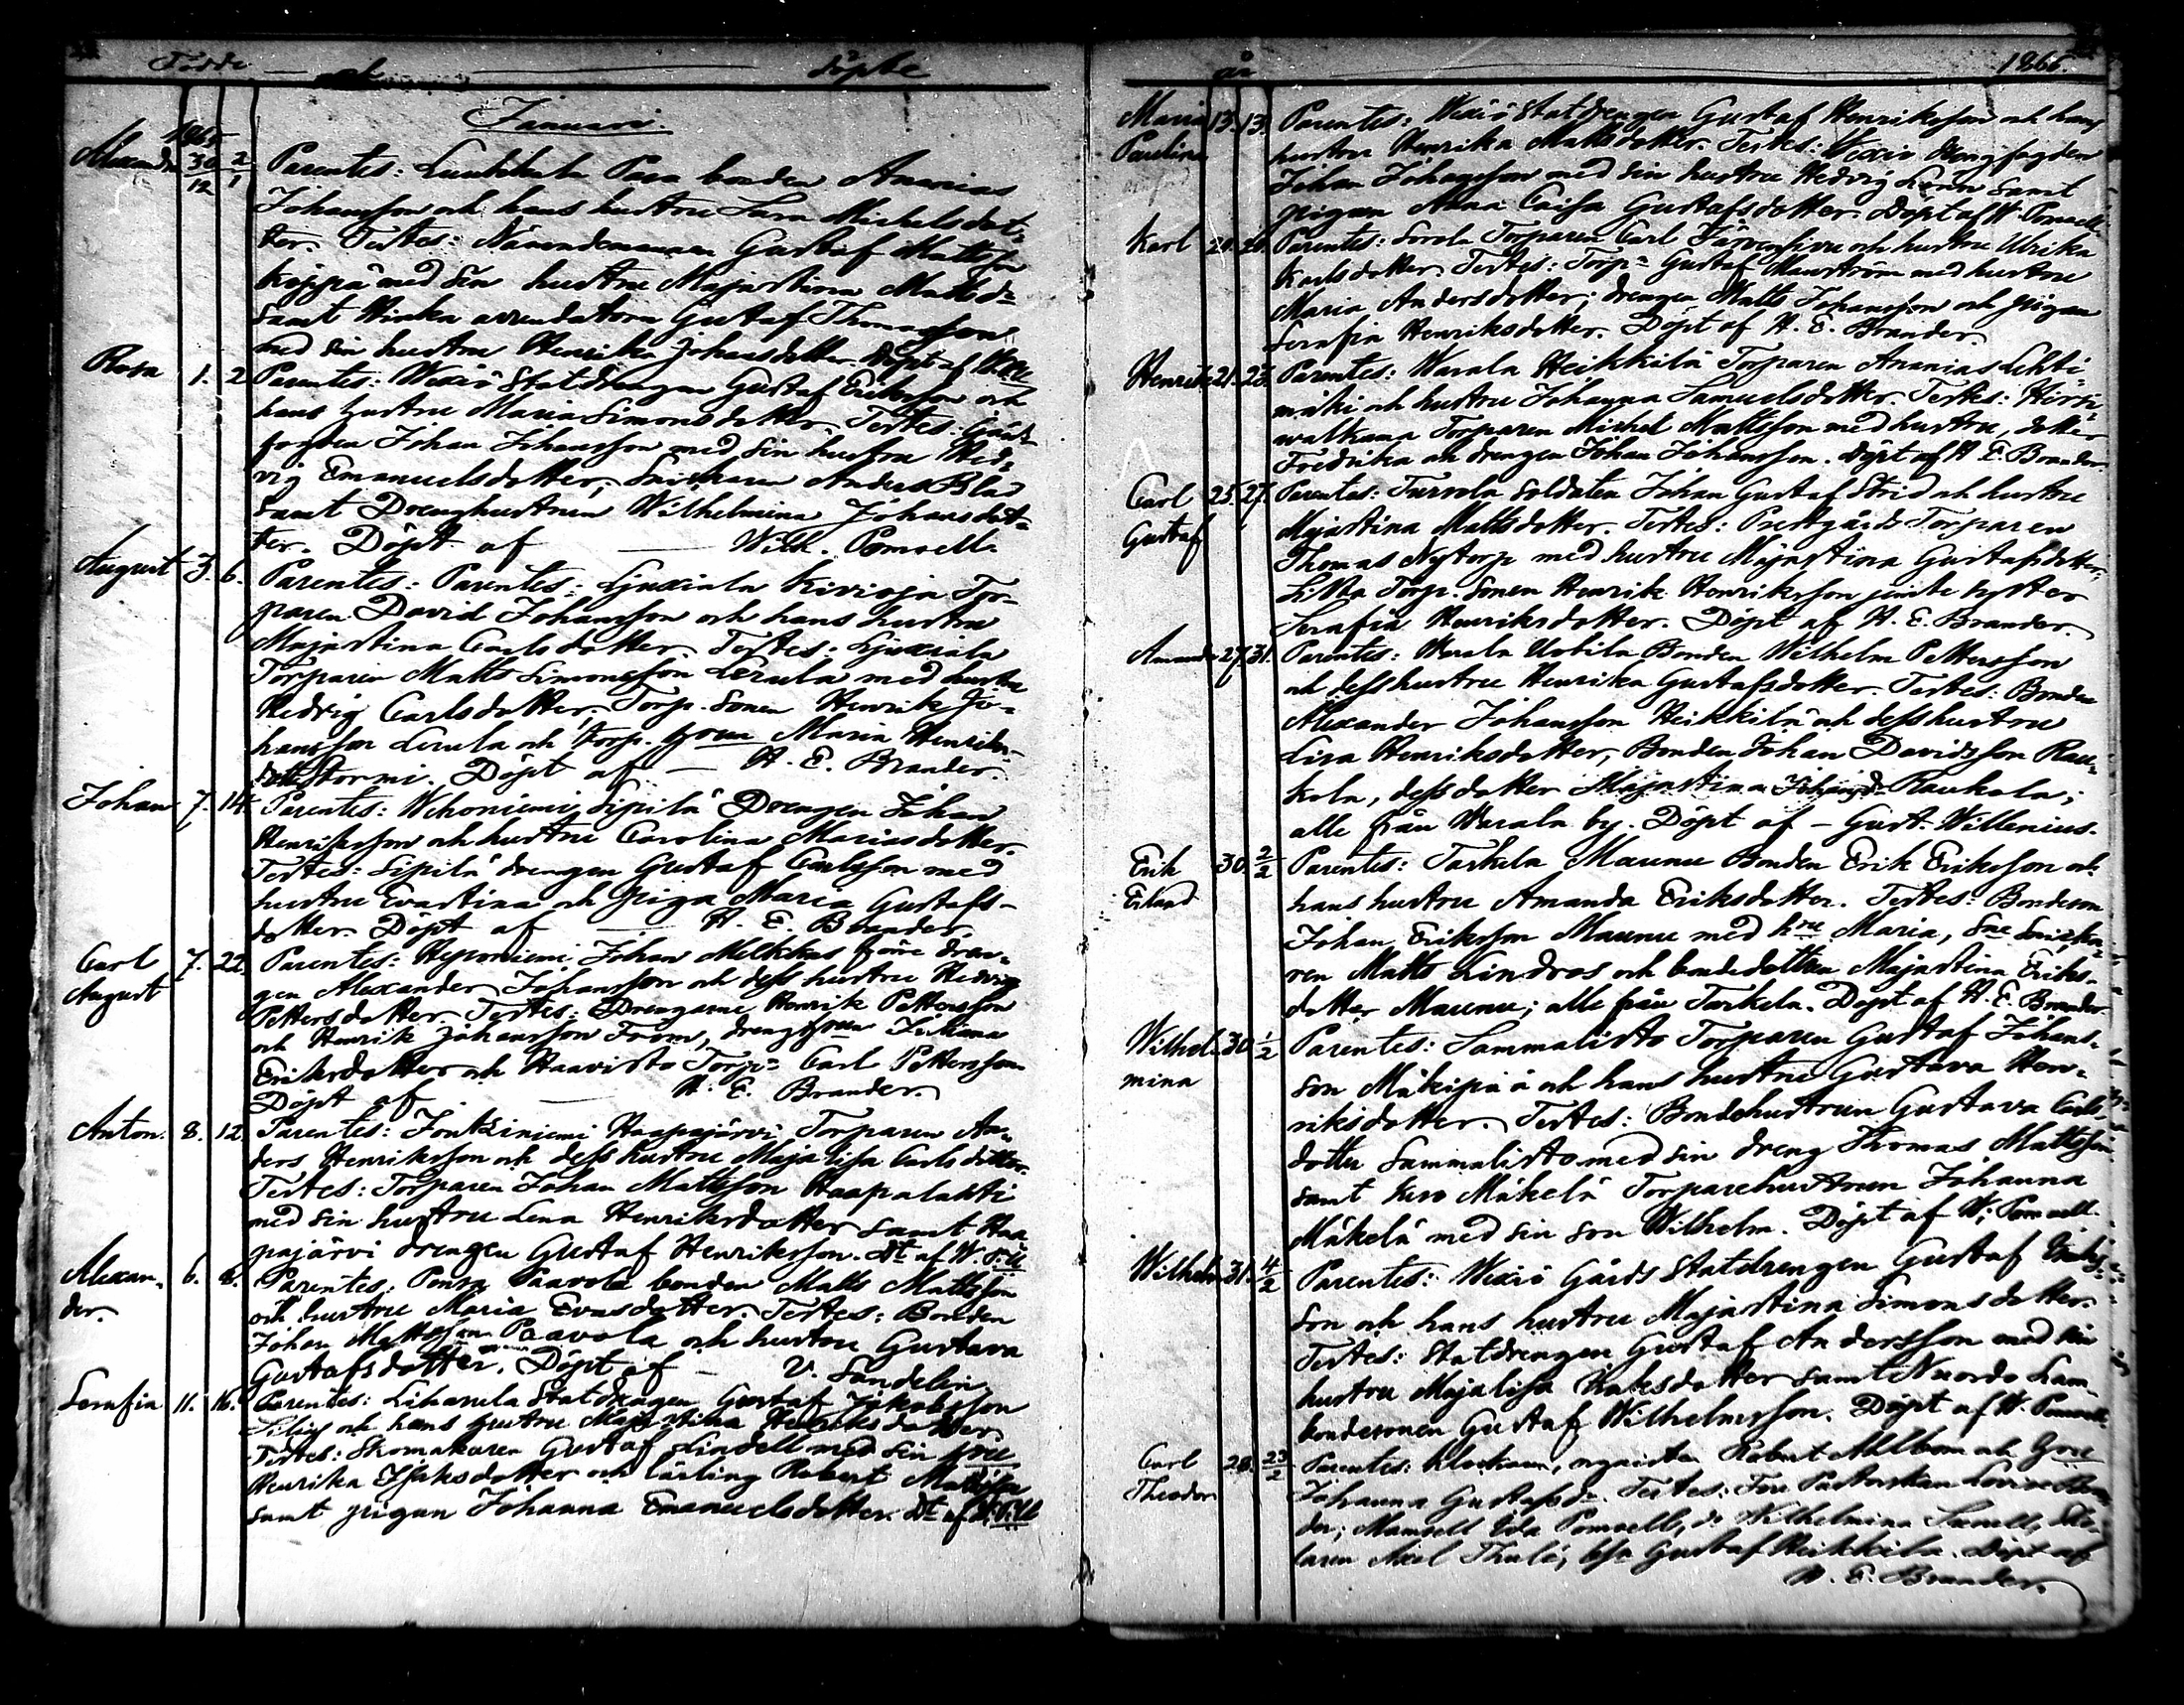 Födde och döpte
Januari.
1865
Alexander 30/12 2/1 Parentes: Luukkala Pava bonden Ananias
Johansson och hans hustru Sara Michelsdot-
ter. Testes: Nämndemannen Gustaf Mattsson
Koppa med sin hustru Majastina Mattsdr
samt Hinka arrendatorn Gustaf Thomasson
med sin hustru Henrika Johansdotter. Döpt af
Rosa 1. 2 Parentes: Wexiö Statdrengen Gustaf Eriksson och
hans hustru Maria Simonsdotter. Testes: Gårds
fogden Johan Johansson med sin hustru Hed-
vig Emanuelsdotter, Snickaren Anders Blad
samt Drenghustrun Wilhelmina Johansdot-
ter. Döpt af — Wilh. Ponsell.
August 3. 6. Parentes: Parentes: Ljuxiala Kivioja Tor-
paren David Johansson och hans hustru
Majastina Carlsdotter. Testes: Ljuxiala
Torparen Matts Simonsson Lerula med hustru
Hedvig Carlsdotter, Torp. Sonen Henrik Jo-
hansson Lerula och Torp. hrun Maria Henriks-
dotter Stormi. Döpt af — H. E. Brander.
Johan 7. 14. Parentes: Wehoniemi Sipilä Drengen Johan
Henriksson och hustru Carolina Mariasdotter.
Testes: Sipilä drengen Gustaf Carlsson med
hustru Evastina och piga Maria Gustafs-
dotter. Döpt af — H. E. Brander.
Carl 7. 22. Parentes: Heponiemi Johan Melkkas före dren-
August gen Alexander Johansson och dess hustru Hedvig
Pettersdotter. Testes: Drengarne Henrik Pettersson
och Henrik Johansson From, drenghrun Justina
Eriksdotter och Haavisto Torpn Carl Pettersson
Döpt af — H. E. Brander.
Anton. 8. 12 Parentes: Fonkiniemi Haapajärvi Torparen An-
ders Henriksson och dess hustru Majalisa Carlsdotter.
Testes: Torparen Johan Mattsson Haapalahti
med sin hustru Lena Henriksdotter samt Haa-
pajärvi drengen Gustaf Henriksson. Dt af W. P:ll
Alexan- 6. 8. Parentes: Punsa Paavola bonden Matts Mattsson
der. och hustru Maria Evasdotter. Testes: Bonden
Johan Mattsson Paavola och hustru Gustava
Gustafsdotter. Döpt af — V. Sandelin
Serafia 11. 16. Parentes: Lihasula Statdrengen Gustaf Jakobsson
och hans hustru Majastina Henriksdotter.
Testes: Skomakaren Gustaf Lindell med sin hru
Henrika Isaksdotter och lärling Robert Mattsson
samt pigan Johanna Emanuelsdotter. Dt af W. P:ll
år 1866.
Maria 13. 13. Parentes: Wexiö Statdrengen Gustaf Henriksson och hans
Paulina hustru Henrika Mattsdotter. Testes: Wexiö Drengfogden
Johan Johansson med sin hustru Hedvig Lönn samt
pigan Anna Caisa Gustafsdotter. Döpt af W. Ponsell.
Karl 20. 20. Parentes: Sorola Torparen Carl Järvensivu och hustru Ulrika
Karlsdotter. Testes: Torpn Gustaf Mauström med hustru
Maria Andersdotter; drengen Matts Johansson och pigan
Serafia Henriksdotter. Döpt af H. E. Brander.
Henrik 21. 23. Parentes: Warala Heikkilä Torparen Ananias Lehti-
mäki och hustru Johanna Samuelsdotter. Testes: Hirsi-
walkama Torparen Michel Mattsson med hustru, dotter
Fredrika och drengen Johan Johansson. Döpt af H. E. Brander.
Carl 25. 27. Parentes: Tursola Soldaten Johan Gustaf Strid och hustru
Gustaf Majastina Mattsdotter. Testes: Prestgårds Torparen
Thomas Nytorp med hustru Majastina Gustafsdotter,
Torp. Sonen Henrik Henriksson jemte syster
Serafia Henriksdotter. Döpt af H. E. Brander.
Amanda 27. 31. Parentes: Warala Uotila Bonden Wilhelm Pettersson
och dess hustru Henrika Gustafsdotter. Testes: Bonden
Alexander Johansson Heikkilä och dess hustru
Lisa Henriksdotter, Bonden Johan Davidsson Rau-
kola, dess dotter Majastina Johansd. Raukola;
alle från Warala by. Döpt af — Gust. Willenius.
Erik 30. 2/2 Parentes: Tarkela Maunu Bonden Erik Eriksson och
Erland hans hustru Amanda Eriksdotter. Testes: Bondeson
Johan Eriksson Maunu med hru Maria, Snicka-
ren Matts Lindros och bondedottren Majastina Eriks-
dotter Maunu; alle från Tarkela. Döpt af H. E. Brander
Wilhel- 30. 1/2 Parentes: Sammalisto Torparen Gustaf Johans-
mina son Mäkipää och hans hustru Gustava Hen-
riksdotter. Testes: Bondehustrun Gustava Carls-
dotter Sammalisto med sin dreng Thomas Mattsson
samt Mäkelä Torparehustrun Johanna
Mäkelä med sin son Wilhelm. Döpt af W. Ponsell.
Wilhelm 31. 4/2 Parentes: Wexiö Gårds Statdrengen Gustaf
son och hans hustru Majastina Simonsdotter.
Testes: Statdrengen Gustaf Andersson med sin
hustru Majalisa Isaksdotter samt Nuordo Lam-
bondesonen Gustaf Wilhelmsson. Döpt af W. Ponsell.
Carl 28. 23/2 Parentes: Klockaren, organisten Robert Ahlbom och hru
Theodor Johanna Gustafsdr. Testes: Fru Pastorskan Lovise Bran-
der; Mamsell Ida Ponsell, do Wilhelmina
Axel Thulé, Gustaf Heikkilä. Döpt af
H. E. Brander.